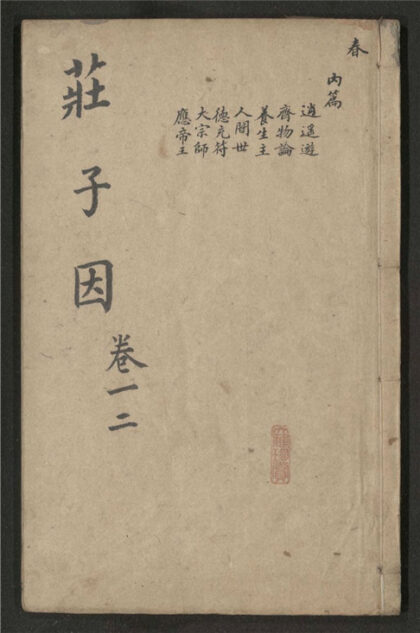 春
內篇
逍遥遊
齊物論
養生主
人間世
德充符
大宗師
應帝王
莊子因
卷一二